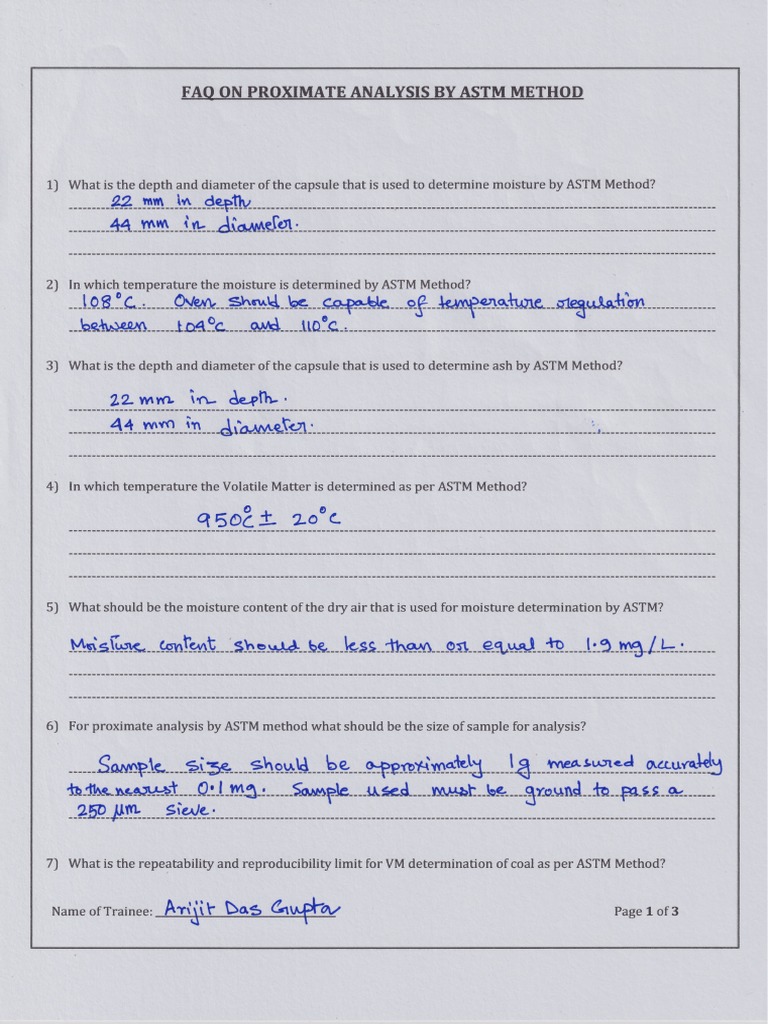 FAQ ON PROXIMATE ANALYSIS BY ASTM METHOD
1) What is the depth and diameter of the capsule that is used to determine moisture by ASTM Method?
22 mm in depth
44 mm in diameter.
2) In which temperature the moisture is determined by ASTM Method?
108°C. Oven should be capable of temperature regulation
between 104°C and 110°C.
3) What is the depth and diameter of the capsule that is used to determine ash by ASTM Method?
22 mm in depth.
44 mm in diameter.
4) In which temperature the Volatile Matter is determined as per ASTM Method?
950°C ± 20°C
5) What should be the moisture content of the dry air that is used for moisture determination by ASTM?
Moisture content should be less than or equal to 1.9 mg/L.
6) For proximate analysis by ASTM method what should be the size of sample for analysis?
Sample size should be approximately 1g measured accurately
to the nearest 0.1 mg. Sample used must be ground to pass a
250 μm sieve.
7) What is the repeatability and reproducibility limit for VM determination of coal as per ASTM Method?
Name of Trainee: Arijit Das Gupta Page 1 of 3